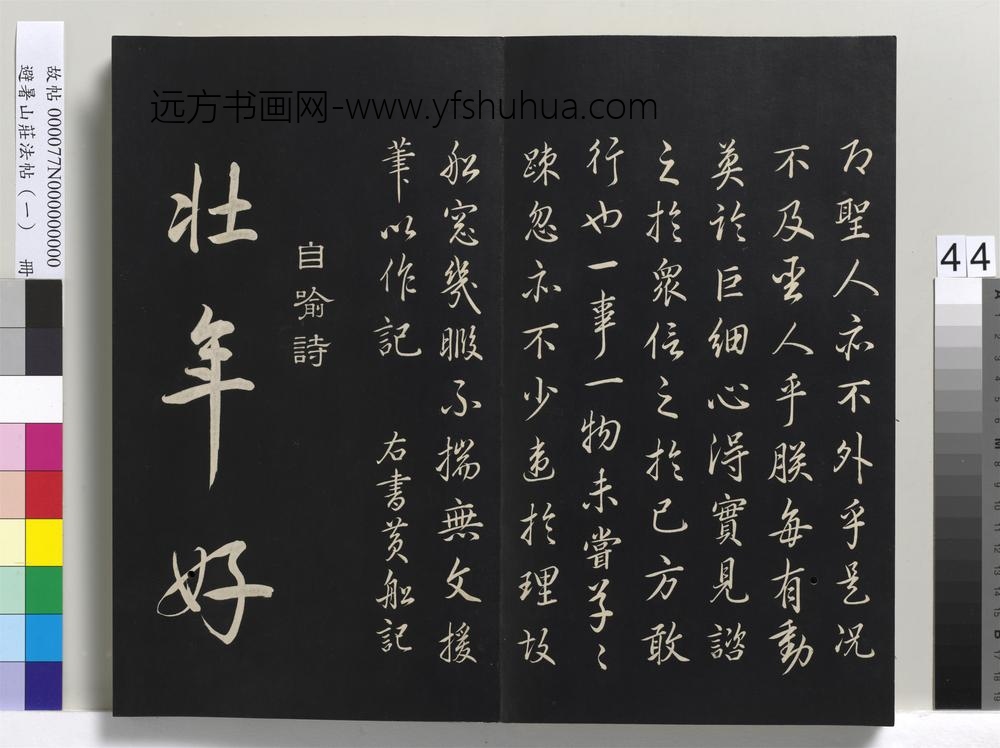 远方书画网-www.yfshuhua.com
聖人亦不外乎是况
不及聖人乎朕每有動
莫論巨細心得實見諮
之於衆信之於已方敢
行也一事一物未嘗草〻
踈忽亦不少違於理故
船窓幾暇不揣無文援
筆以作記 右書黄船記
自喻詩
壯年好
故帖 000077N000000000
避暑山莊法帖(一) 冊
44